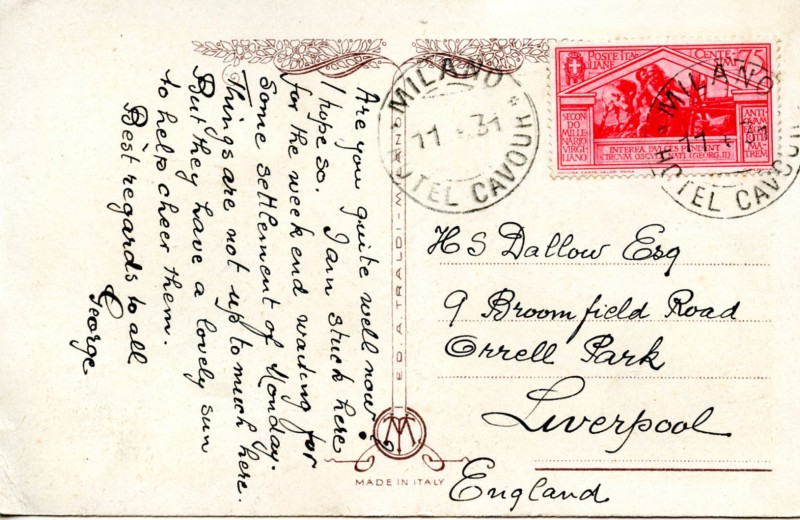 Are you quite well now?
I hope so. I am stuck here
for the week end waiting for
some settlement of Monday.
Things are not up to much here.
But they have a lovely sun
to help cheer them.
Best regards to all
George
ED. A. TRALDI - MILANO
MADE IN ITALY
MILANO
11 . 31
HOTEL CAVOUR
POSTE ITALIANE
CENTESIMI 75
SECONDO MILLENARIO VIRGILIANO
ANTIQUAM EXQUIRITE MATREM
INTEREA DVLCES PENDENT
CIRCVM OSCVLA NATI (GEORG. II)
MILANO
11
HOTEL CAVOUR
H S Dallow Esq
9 Broomfield Road
Orrell Park
Liverpool
England